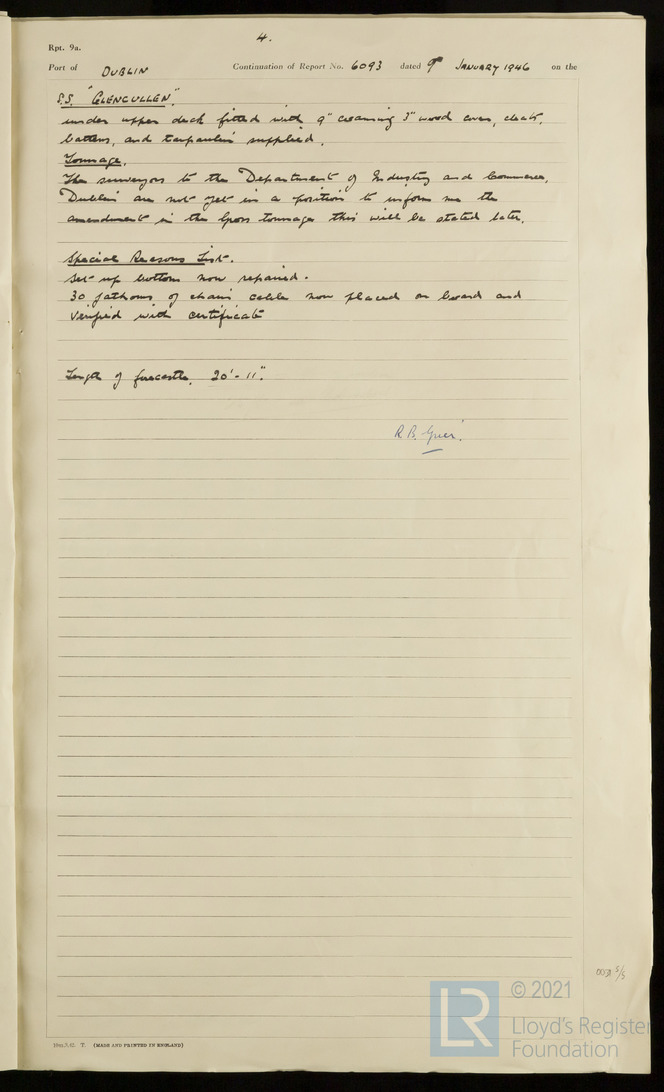 4.
Rpt. 9a.
Port of DUBLIN Continuation of Report No. 6093 dated 9th JANUARY 1946 on the
S.S. "GLENCULLEN".
under upper deck fitted with 9" coaming 3" wood covers, cleats,
battens, and tarpaulin supplied.
Tonnage.
The surveyors to the Department of Industry and Commerce,
Dublin are not yet in a position to inform me the
amendment in the Gross tonnage this will be stated later.
Special Reasons List.
Set up bottom now repaired.
30 fathoms of chain cable now placed on board and
verified with certificate
Length of forecastle, 20'-11".
R.B.
10m,9,42. T. (MADE AND PRINTED IN ENGLAND)
5/5
© 2021
LR
Lloyd's Register
Foundation